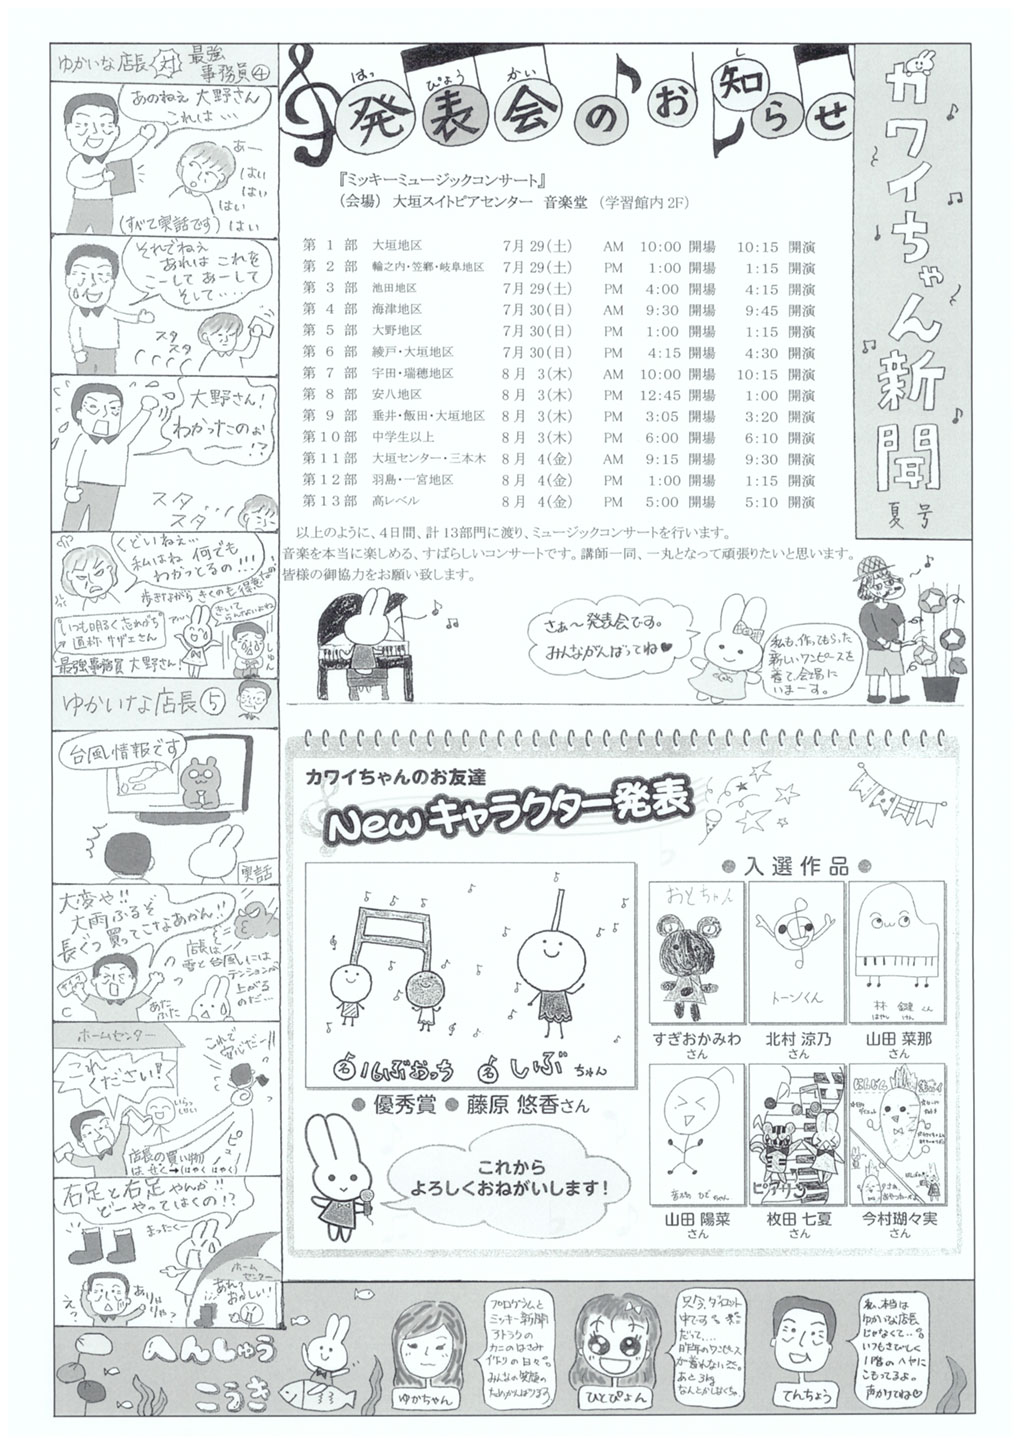 カワイちゃん新聞
夏号
発表会のお知らせ
はっ ぴょう かい し
『ミッキーミュージックコンサート』
(会場) 大垣スイトピアセンター 音楽堂 (学習館内2F)
第1部 大垣地区 7月29(土) AM 10:00 開場 10:15 開演
第2部 輪之内・笠郷・岐阜地区 7月29(土) PM 1:00 開場 1:15 開演
第3部 池田地区 7月29(土) PM 4:00 開場 4:15 開演
第4部 海津地区 7月30(日) AM 9:30 開場 9:45 開演
第5部 大野地区 7月30(日) PM 1:00 開場 1:15 開演
第6部 綾戸・大垣地区 7月30(日) PM 4:15 開場 4:30 開演
第7部 宇田・瑞穂地区 8月 3(木) AM 10:00 開場 10:15 開演
第8部 安八地区 8月 3(木) PM 12:45 開場 1:00 開演
第9部 垂井・飯田・大垣地区 8月 3(木) PM 3:05 開場 3:20 開演
第10部 中学生以上 8月 3(木) PM 6:00 開場 6:10 開演
第11部 大垣センター・三本木 8月 4(金) AM 9:15 開場 9:30 開演
第12部 羽島・一宮地区 8月 4(金) PM 1:00 開場 1:15 開演
第13部 高レベル 8月 4(金) PM 5:00 開場 5:10 開演
以上のように、4日間、計13部門に渡り、ミュージックコンサートを行います。
音楽を本当に楽しめる、すばらしいコンサートです。講師一同、一丸となって頑張りたいと思います。
皆様の御協力をお願い致します。
さぁ～発表会です。
みんながんばってね♥
私も、作ってもらった
新しいワンピースを
着て会場に
いまーす。
ゆかいな店長 対 最強
事務員④
あのねぇ 大野さん
これは…
あー
はい
はい
はい
はい
(すべて実話です)
それでねぇ
あれは これを
こーして あーして
そして…
スタ
スタ
大野さん!
わかったのぉ
ー!?
スタ
スタ
くどいねぇ…
私はね 何でも
わかってるの!!!
歩きながら きくのも得意なの
いつも明るく忘れがち
通称 サザエさん
最強事務員 大野さん!
しゅん
ゆかいな店長⑤
台風情報です
実話
大変や!!
大雨ふるぞ
長ぐつ買ってこなあかん!!
店長は
雪と台風には
テンションが
上がる
のだ…
あた
ふた
ホームセンター
これ
ください!
これで
安心だー!!
いらっ
しゃい
店長の買い物
は、せく→(はやく はやく)
右足と右足やんか!!
どーやってはくの!?
まったく～
えっ?
ありゃ
りゃ?
ホーム
センター
あれ?
おかしい!
カワイちゃんのお友達
Newキャラクター発表
名 16ぶおっち 名 しぶちゃん
● 優秀賞 ● 藤原 悠香さん
これから
よろしくおねがいします!
● 入選作品 ●
おとちゃん
トーンくん
林 鍵 くん
はやし けん
すぎおかみわ
さん
北村 涼乃
さん
山田 菜那
さん
山田 陽菜
さん
枚田 七夏
さん
今村瑚々実
さん
へんしゅう
こうき
ゆかちゃん
プログラムと
ミッキー新聞
アトラクの
カニのはさみ
作りの日々。
みんなの笑顔の
ためがんばります
ひとぴょん
只今、ダイエット
中です。
だって…
昨年のワンピース
が着れない
あと3kg
なんとかしなくちゃ。
てんちょう
私、本当は
ゆかいな店長
じゃなくて…。
いつもさびしく
1階のヘヤに
こもってるよ。
声かけてね♡